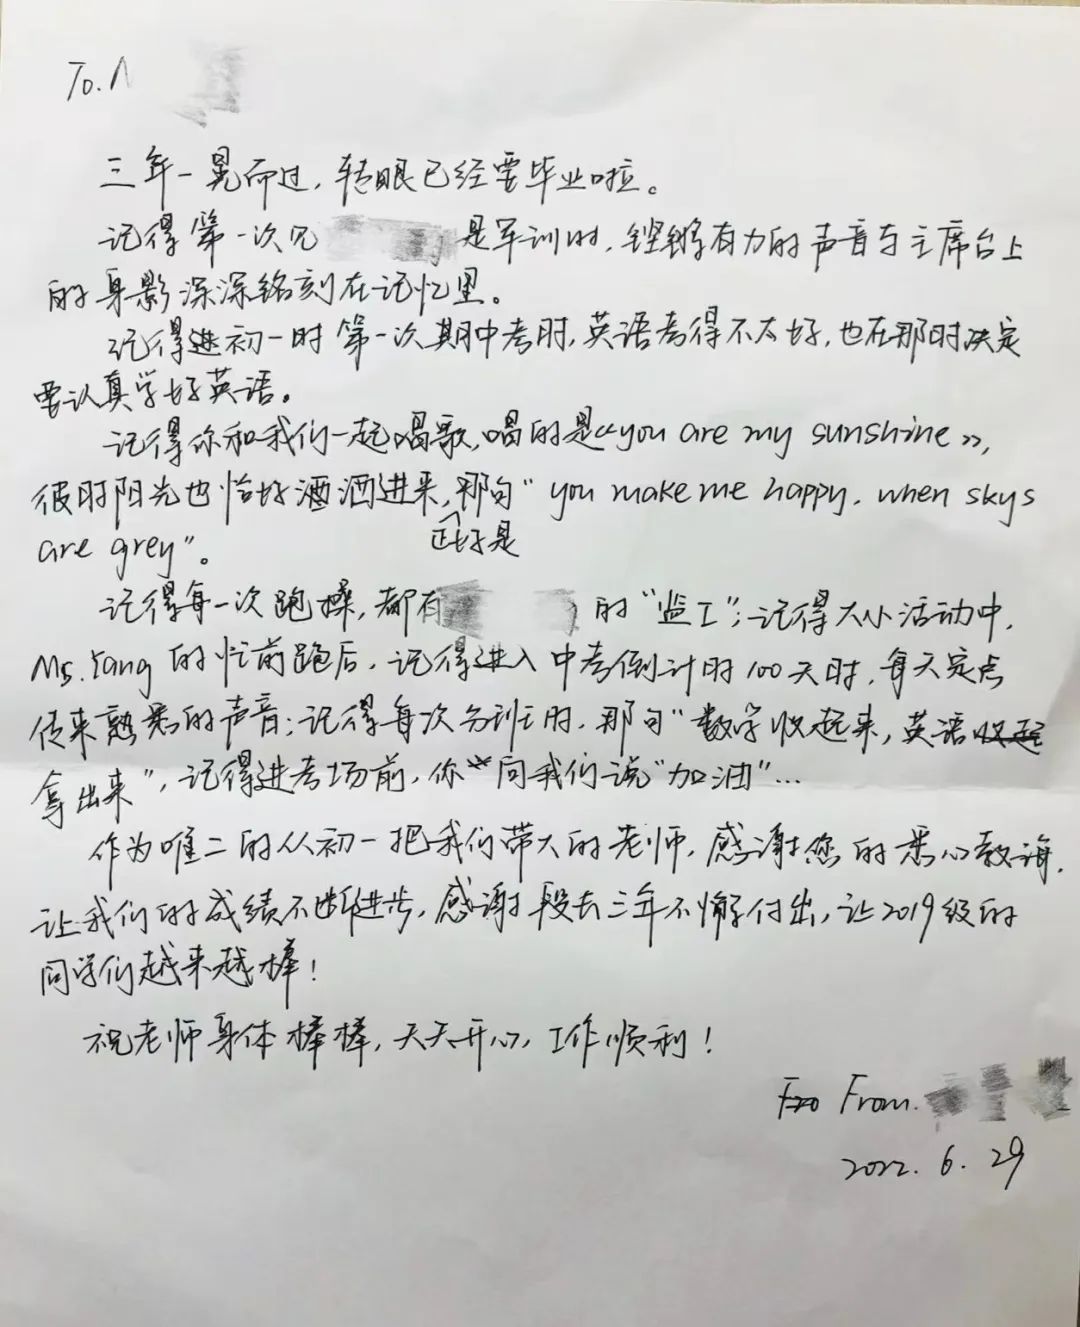 To.
三年一晃而过，转眼已经要毕业啦。
记得第一次见 是军训时，铿锵有力的声音与主席台上
的身影深深铭刻在记忆里。
记得进初一时第一次期中考时，英语考得不太好，也在那时决定
要认真学好英语。
记得你和我们一起唱歌，唱的是《you are my sunshine》，
彼时阳光也恰好洒洒进来，正好是那句“you make me happy, when skys
are grey”。
记得每一次跑操，都有 的“监工”；记得大小活动中，
Ms. Yang 的忙前跑后，记得进入中考倒计时100天时，每天定点
传来熟悉的声音；记得每次分班时，那句“数学收起来，英语
拿出来”，记得进考场前，你 向我们说“加油”…
作为唯二的从初一把我们带大的老师，感谢您的悉心教诲，
让我们的成绩不断进步，感谢段长三年不懈付出，让2019级的
同学们越来越棒！
祝老师身体棒棒，天天开心，工作顺利！
From.
2022. 6. 29